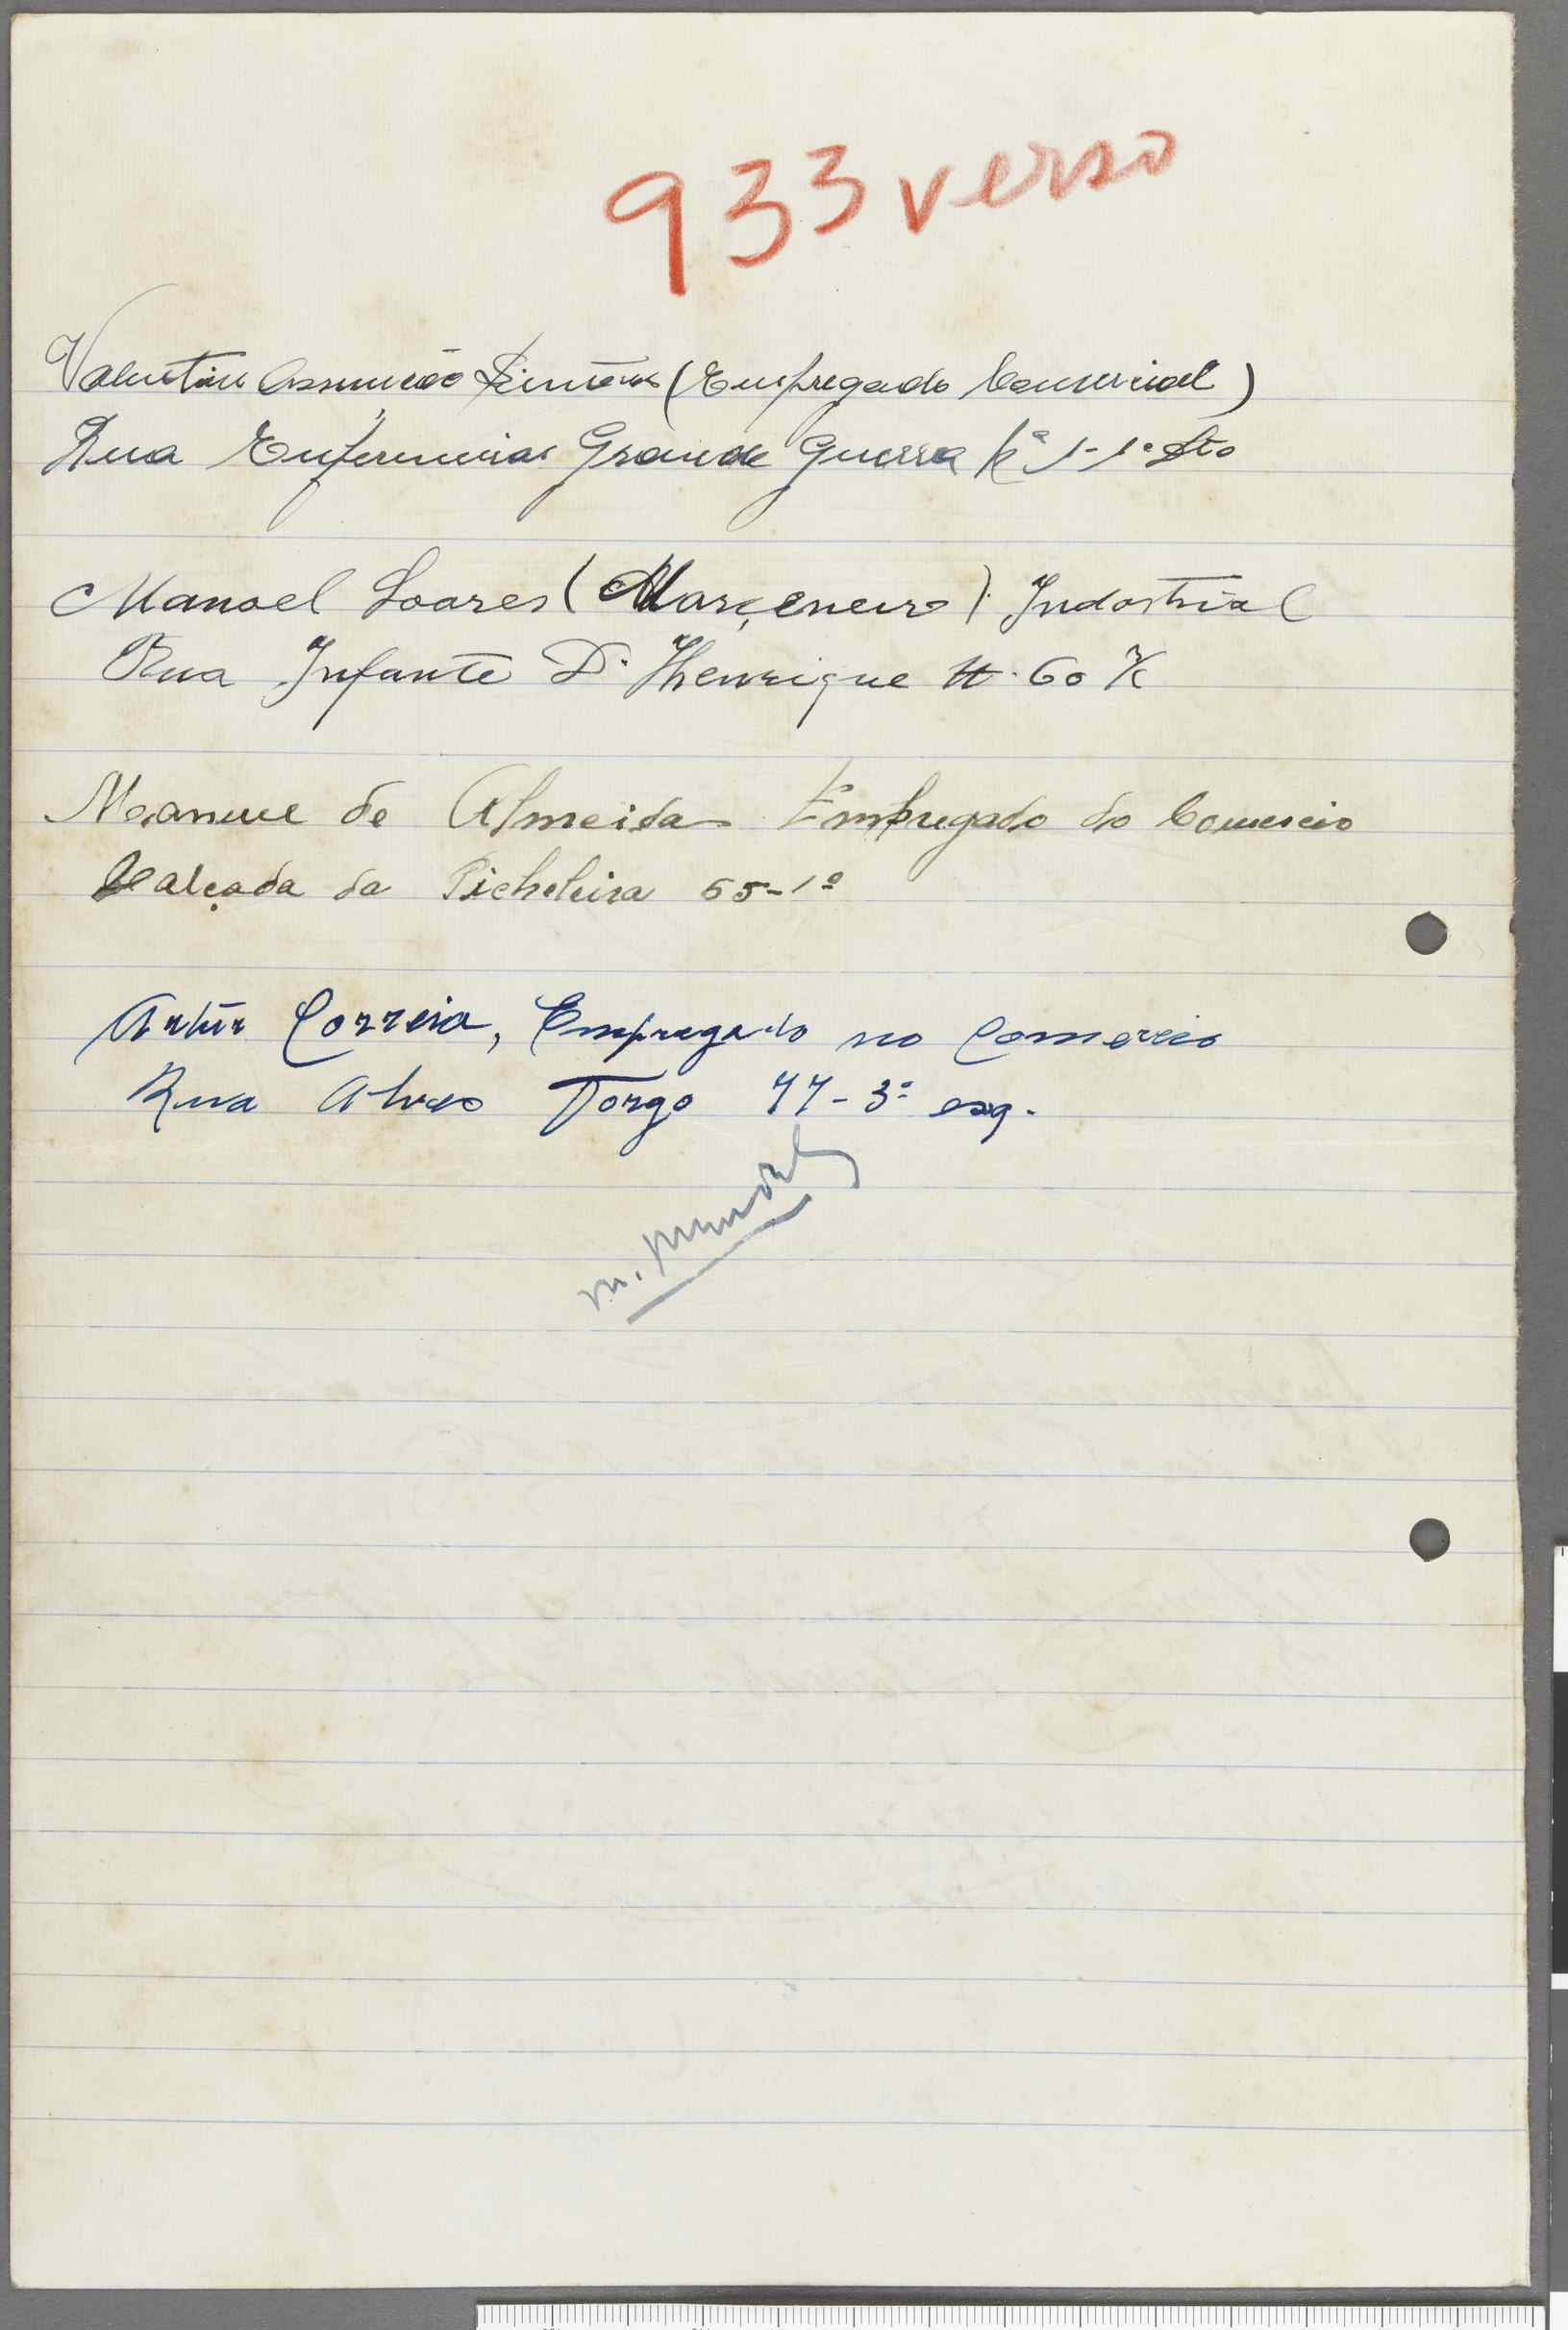 933 verso
Valentim Assunção Simões (Empregado Comercial)
Rua Enfermeiras Grande Guerra 1-1º Dto
Manoel Soares (Marçeneiro) Indostrial
Rua Infante D. Henrique 60
Manuel de Almeida Empregado do Comercio
Calçada da Picheleira 65-1º
Artur Correia, Empregado no Comercio
Rua Alves Torgo 77-3º esq.